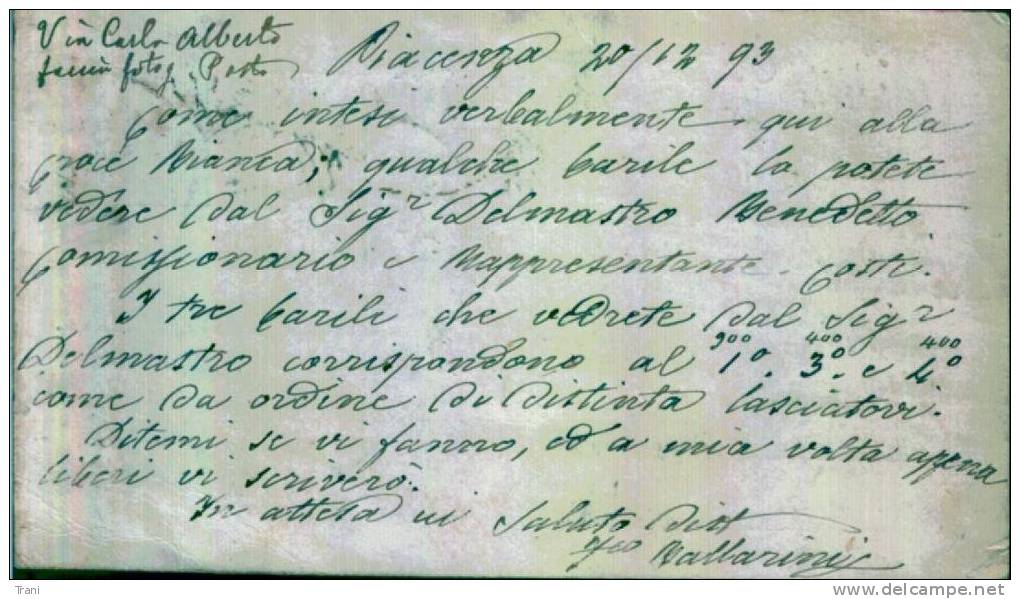 Via Carlo Alberto
Piacenza 20/12 93
Come intesi verbalmente qui alla
Croce Bianca, qualche barile lo potete
vedere dal Sigr Delmastro Benedetto
Comissionario e Rappresentante costì.
I tre barili che vedrete dal Sigr
Delmastro corrispondono al 1º. 3º. e 4º
400 400
come da ordine di distinta lasciatovi.
Ditemi se vi fanno, ed a mia volta appena
liberi vi scriverò.
In attesa vi saluto dist
Ballarini
Trani
www.delcampe.net